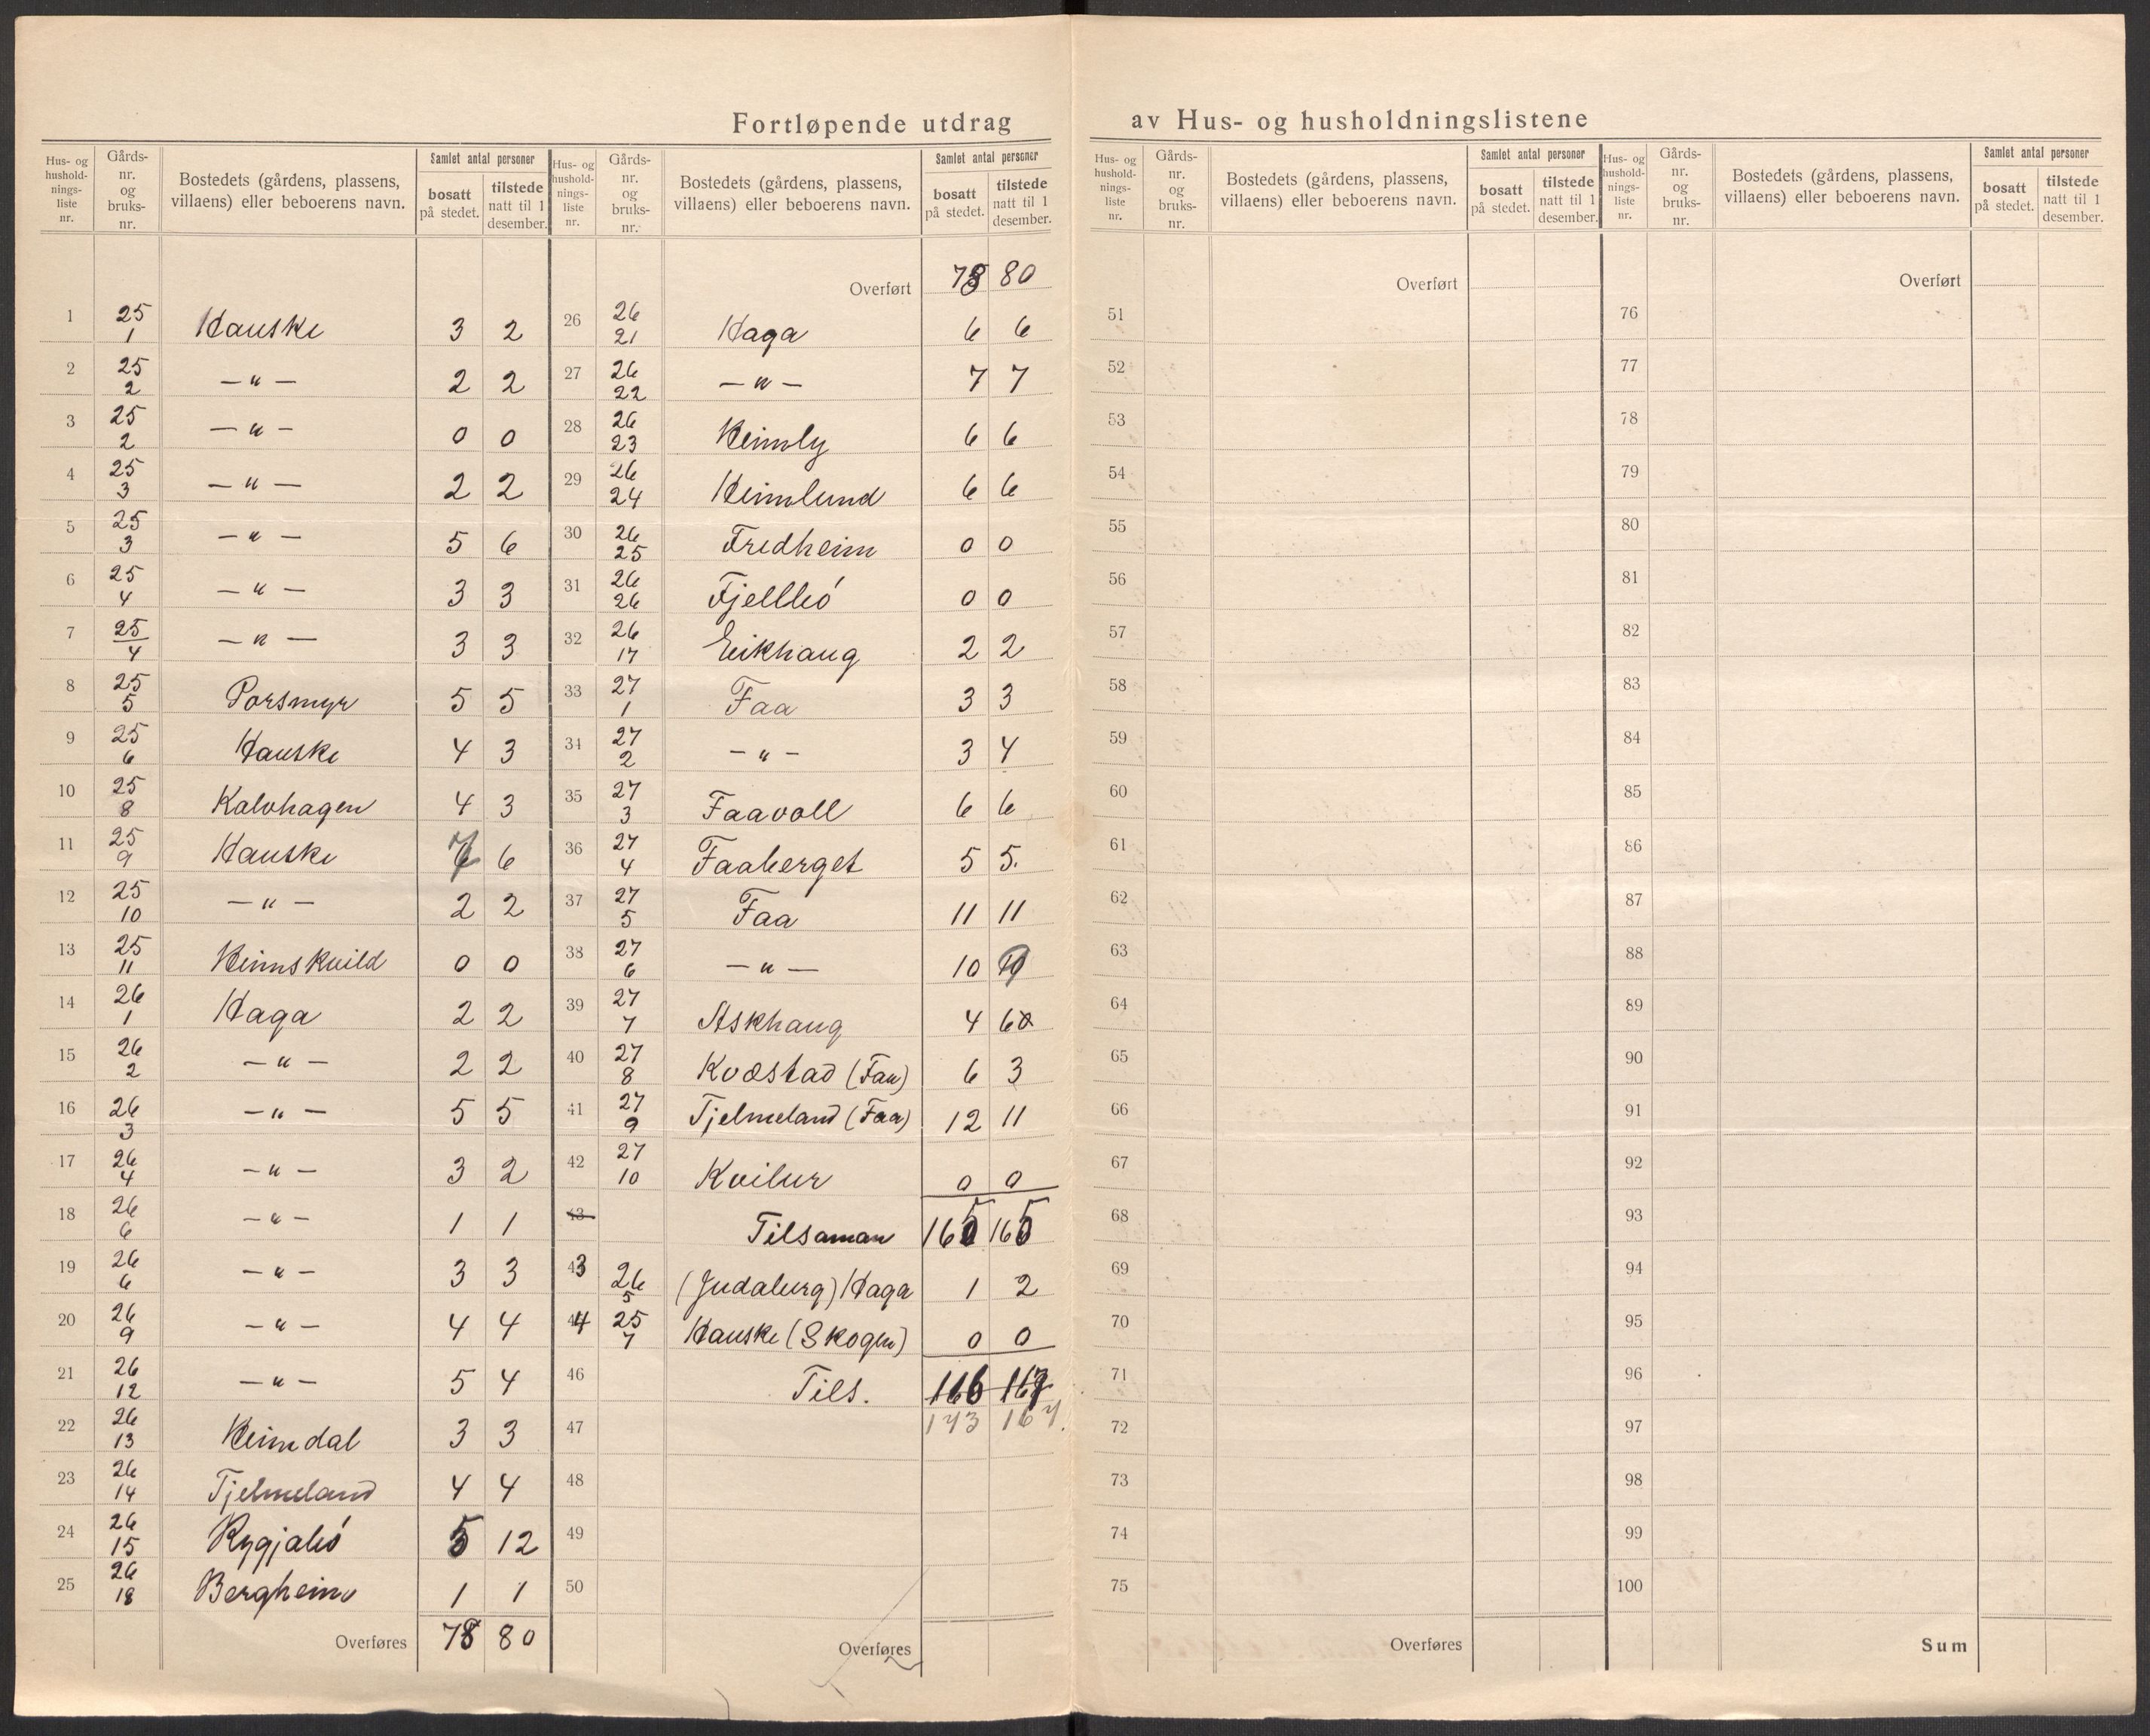 Fortløpende utdrag av Hus- og husholdningslistene
Hus- og hushold-nings-liste nr. | Gårds-nr. og bruks-nr. | Bostedets (gårdens, plassens, villaens) eller beboerens navn. | Samlet antal personer | bosatt på stedet. | tilstede natt til 1 desember.
1 25/1 Hauske 3 2
2 25/2 —„— 2 2
3 25/2 —„— 0 0
4 25/3 —„— 2 2
5 25/3 —„— 5 6
6 25/4 —„— 3 3
7 25/4 —„— 3 3
8 25/5 Porsmyr 5 5
9 25/6 Hauske 4 3
10 25/8 Kalvhagen 4 3
11 25/9 Hauske 7 6
12 25/10 —„— 2 2
13 25/11 Heimskvild 0 0
14 26/1 Haga 2 2
15 26/2 —„— 2 2
16 26/3 —„— 5 5
17 26/4 —„— 3 2
18 26/6 —„— 1 1
19 26/6 —„— 3 3
20 26/9 —„— 4 4
21 26/12 —„— 5 4
22 26/13 Heimdal 3 3
23 26/14 Tjelmeland 4 4
24 26/15 Rygjabø 5 12
25 26/18 Bergheim 1 1
Overføres 78 80
Hus- og hushold-nings-liste nr. | Gårds-nr. og bruks-nr. | Bostedets (gårdens, plassens, villaens) eller beboerens navn. | Samlet antal personer | bosatt på stedet. | tilstede natt til 1 desember.
Overført 78 80
26 26/21 Haga 6 6
27 26/22 —„— 7 7
28 26/23 Heimly 6 6
29 26/24 Heimlund 6 6
30 26/25 Fredheim 0 0
31 26/26 Fjellbó 0 0
32 26/17 Eikhaug 2 2
33 27/1 Faa 3 3
34 27/2 —„— 3 4
35 27/3 Faavoll 6 6
36 27/4 Faaberget 5 5.
37 27/5 Faa 11 11
38 27/6 —„— 10
39 27/7 Askhaug 4 6
40 27/8 Kvæstad (Faa) 6 3
41 27/9 Tjelmeland (Faa) 12 11
42 27/10 Kvilur 0 0
43 Tilsaman 165 165
43 26/5 (Judaberg) Haga 1 2
44 25/7 Hauske (Skogen) 0 0
46 Tils. 166 167
47 173 167.
48
49
50
Overføres
Hus- og hushold-nings-liste nr. | Gårds-nr. og bruks-nr. | Bostedets (gårdens, plassens, villaens) eller beboerens navn. | Samlet antal personer | bosatt på stedet. | tilstede natt til 1 desember.
Overført
51
52
53
54
55
56
57
58
59
60
61
62
63
64
65
66
67
68
69
70
71
72
73
74
75
Overføres
Hus- og hushold-nings-liste nr. | Gårds-nr. og bruks-nr. | Bostedets (gårdens, plassens, villaens) eller beboerens navn. | Samlet antal personer | bosatt på stedet. | tilstede natt til 1 desember.
Overført
76
77
78
79
80
81
82
83
84
85
86
87
88
89
90
91
92
93
94
95
96
97
98
99
100
Sum